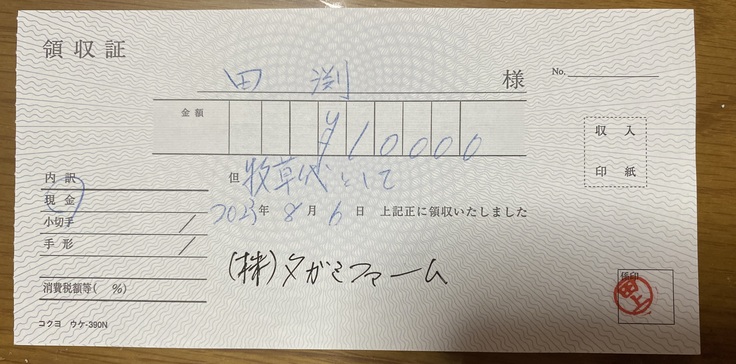 領収証
田渕 様
No.
金額 ¥10000
収入
印紙
但 牧草代として
内訳
現金
2023年 8月 6日 上記正に領収いたしました
小切手 /
手形 /
(株)タガミファーム
消費税額等( %)
係印
田上
コクヨ ウケ-390N